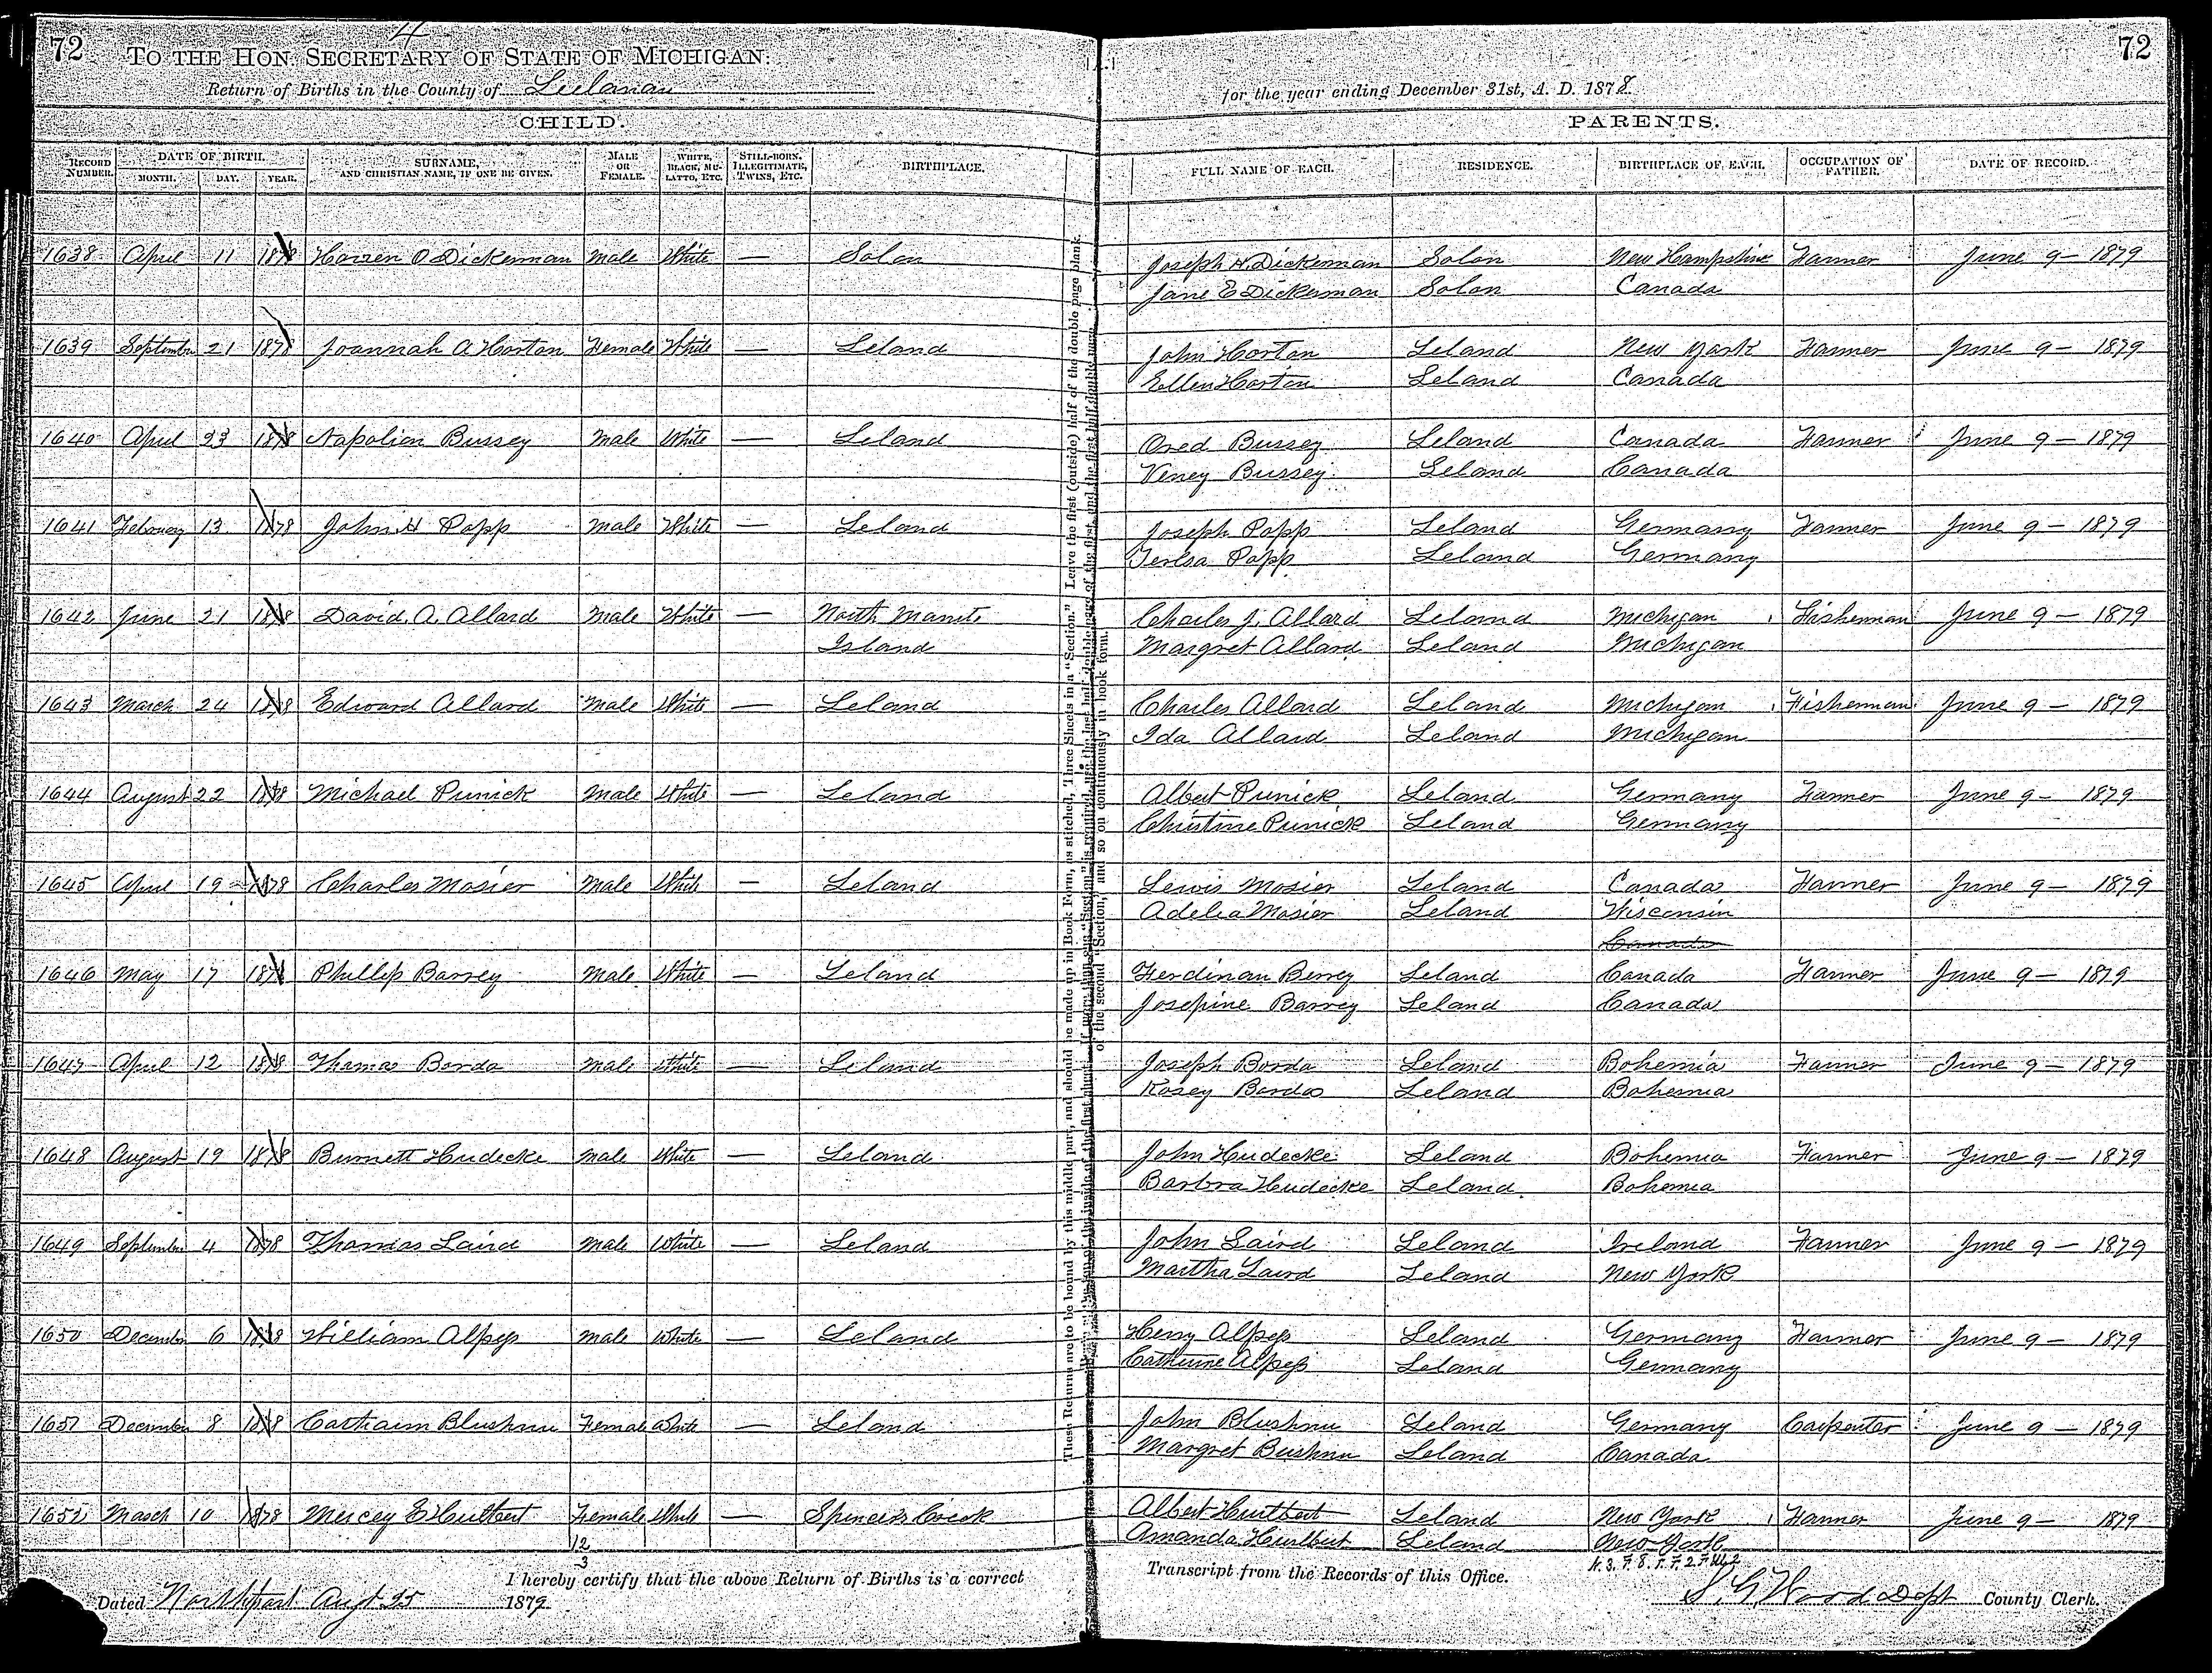 72 4 72
TO THE HON. SECRETARY OF STATE OF MICHIGAN:
Return of Births in the County of Leelanau for the year ending December 31st, A. D. 1878.
CHILD. PARENTS.
RECORD NUMBER. DATE OF BIRTH. MONTH. DAY. YEAR. SURNAME, AND CHRISTIAN NAME, IF ONE BE GIVEN. MALE OR FEMALE. WHITE, BLACK, MULATTO, ETC. STILL-BORN, ILLEGITIMATE, TWINS, ETC. BIRTHPLACE. FULL NAME OF EACH. RESIDENCE. BIRTHPLACE OF EACH. OCCUPATION OF FATHER. DATE OF RECORD.
1638 April 11 1878 O Dickerman Male White — Solon Joseph H. Dickerman Solon New Hampshire Farmer June 9 — 1879
Jane E Dickerman Solon Canada
1639 September 21 1878 Joannah A Horton Female White — Leland John Horton Leland New York Farmer June 9 — 1879
Ellen Horton Leland Canada
1640 April 23 1878 Napolian Bussey Male White — Leland Ored Bussey Leland Canada Farmer June 9 — 1879
Veney Bussey Leland Canada
1641 February 13 1878 John H Popp Male White — Leland Joseph Popp Leland Germany Farmer June 9 — 1879
Teresa Popp Leland Germany
1642 June 21 1878 David A. Allard Male White — North Manito Charles J. Allard Leland Michigan Fisherman June 9 — 1879
Island Margret Allard Leland Michigan
1643 March 24 1878 Edward Allard Male White — Leland Charles Allard Leland Michigan Fisherman June 9 — 1879
Ida Allard Leland Michigan
1644 August 22 1878 Michael Punick Male White — Leland Albert Punick Leland Germany Farmer June 9 — 1879
Christine Punick Leland Germany
1645 April 19 1878 Charles Mosier Male White — Leland Lewis Mosier Leland Canada Farmer June 9 — 1879
Adelia Mosier Leland Wisconsin
Canada
1646 May 17 1878 Phillip Barrey Male White — Leland Ferdinan Berrey Leland Canada Farmer June 9 — 1879
Josepine Barrey Leland Canada
1647 April 12 1878 Thomas Borda Male White — Leland Joseph Borda Leland Bohemia Farmer June 9 — 1879
Rosey Borda Leland Bohemia
1648 August 19 1878 Burnett Hudecke Male White — Leland John Hudecke Leland Bohemia Farmer June 9 — 1879
Barbra Hudecke Leland Bohemia
1649 September 4 1878 Thomas Laird Male White — Leland John Laird Leland Ireland Farmer June 9 — 1879
Martha Laird Leland New York
1650 December 6 1878 William Alpers Male White — Leland Henry Alpers Leland Germany Farmer June 9 — 1879
Catherine Alpers Leland Germany
1651 December 8 1878 Blushnu Female White — Leland John Blushnu Leland Germany Carpenter June 9 — 1879
Margret Bushnu Leland Canada
1652 March 10 1878 Mercey E Hulbert Female White — Albert Hurlbert Leland New York Farmer June 9 — 1879
Amanda Hurlbert Leland New York
12
3
I hereby certify that the above Return of Births is a correct Transcript from the Records of this Office.
Dated Northport Augt 25 1879 S. G. Wood Dept County Clerk.
These Returns are to be bound by this middle part, and should be made up in Book Form, as stitched, Three Sheets in a "Section." Leave the first (outside) half of the double page blank.
of the second "Section," and so on continuously in book form.